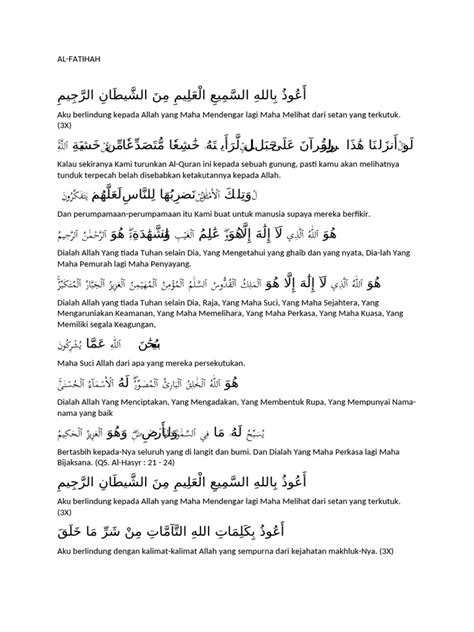 AL-FATIHAH
أَعُوذُ بِاللهِ السَّمِيعِ الْعَلِيمِ مِنَ الشَّيطَانِ الرَّجِيمِ
Aku berlindung kepada Allah yang Maha Mendengar lagi Maha Melihat dari setan yang terkutuk.
(3X)
لَوْ أَنزَلْنَا هَٰذَا ٱلْقُرْآنَ عَلَىٰ جَبَلٍ لَّرَأَيْتَهُۥ خَٰشِعًا مُّتَصَدِّعًا مِّنْ خَشْيَةِ ٱللَّهِ
Kalau sekiranya Kami turunkan Al-Quran ini kepada sebuah gunung, pasti kamu akan melihatnya
tunduk terpecah belah disebabkan ketakutannya kepada Allah.
وَتِلْكَ ٱلْأَمْثَٰلُ نَضْرِبُهَا لِلنَّاسِ لَعَلَّهُمْ يَتَفَكَّرُونَ
Dan perumpamaan-perumpamaan itu Kami buat untuk manusia supaya mereka berfikir.
هُوَ ٱللَّهُ ٱلَّذِي لَآ إِلَٰهَ إِلَّا هُوَ عَٰلِمُ ٱلْغَيْبِ وَٱلشَّهَٰدَةِ هُوَ ٱلرَّحْمَٰنُ ٱلرَّحِيمُ
Dialah Allah Yang tiada Tuhan selain Dia, Yang Mengetahui yang ghaib dan yang nyata, Dia-lah Yang
Maha Pemurah lagi Maha Penyayang.
هُوَ ٱللَّهُ ٱلَّذِي لَآ إِلَٰهَ إِلَّا هُوَ ٱلْمَلِكُ ٱلْقُدُّوسُ ٱلسَّلَٰمُ ٱلْمُؤْمِنُ ٱلْمُهَيْمِنُ ٱلْعَزِيزُ ٱلْجَبَّارُ ٱلْمُتَكَبِّرُ
Dialah Allah yang tiada Tuhan selain Dia, Raja, Yang Maha Suci, Yang Maha Sejahtera, Yang
Mengaruniakan Keamanan, Yang Maha Memelihara, Yang Maha Perkasa, Yang Maha Kuasa, Yang
Memiliki segala Keagungan,
ٱللَّهِ عَمَّا يُشْرِكُونَ
Maha Suci Allah dari apa yang mereka persekutukan.
هُوَ ٱللَّهُ ٱلْخَٰلِقُ ٱلْبَارِئُ ٱلْمُصَوِّرُ لَهُ ٱلْأَسْمَآءُ ٱلْحُسْنَىٰ
Dialah Allah Yang Menciptakan, Yang Mengadakan, Yang Membentuk Rupa, Yang Mempunyai Nama-
nama yang baik
يُسَبِّحُ لَهُۥ مَا فِي ٱلسَّمَٰوَٰتِ وَٱلْأَرْضِ وَهُوَ ٱلْعَزِيزُ ٱلْحَكِيمُ
Bertasbih kepada-Nya seluruh yang di langit dan bumi. Dan Dialah Yang Maha Perkasa lagi Maha
Bijaksana. (QS. Al-Hasyr : 21 - 24)
أَعُوذُ بِاللهِ السَّمِيعِ الْعَلِيمِ مِنَ الشَّيطَانِ الرَّجِيمِ
Aku berlindung kepada Allah yang Maha Mendengar lagi Maha Melihat dari setan yang terkutuk.
(3X)
أَعُوذُ بِكَلِمَاتِ اللهِ التَّآمَّاتِ مِنْ شَرِّ مَا خَلَقَ
Aku berlindung dengan kalimat-kalimat Allah yang sempurna dari kejahatan makhluk-Nya. (3X)